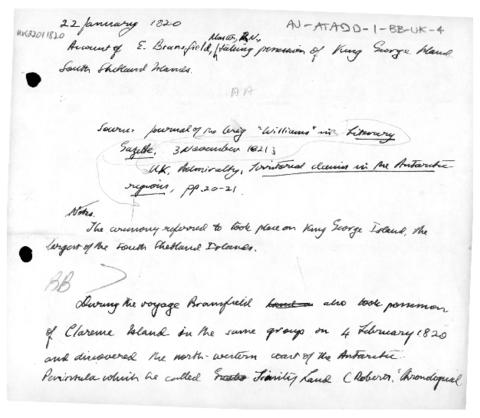 22 January 1820
AU-ATADD-1-BB-UK-4
UK22011820
Account of E. Bransfield, Master, R.N., taking possession of King George Island
South Shetland Islands.
AA
Source: Journal of the brig "Williams" in Literary
Gazette, 3 November 1821;
UK, Admiralty, Territorial claims in the Antarctic
regions, pp. 20-21.
Notes.
The ceremony referred to took place on King George Island, the
largest of the South Shetland Islands.
BB
During the voyage Bransfield also took possession
of Clarence Island in the same group on 4 February 1820
and discovered the north-western coast of the Antarctic
Peninsula which he called Trinity Land (Roberts, 'Chronological